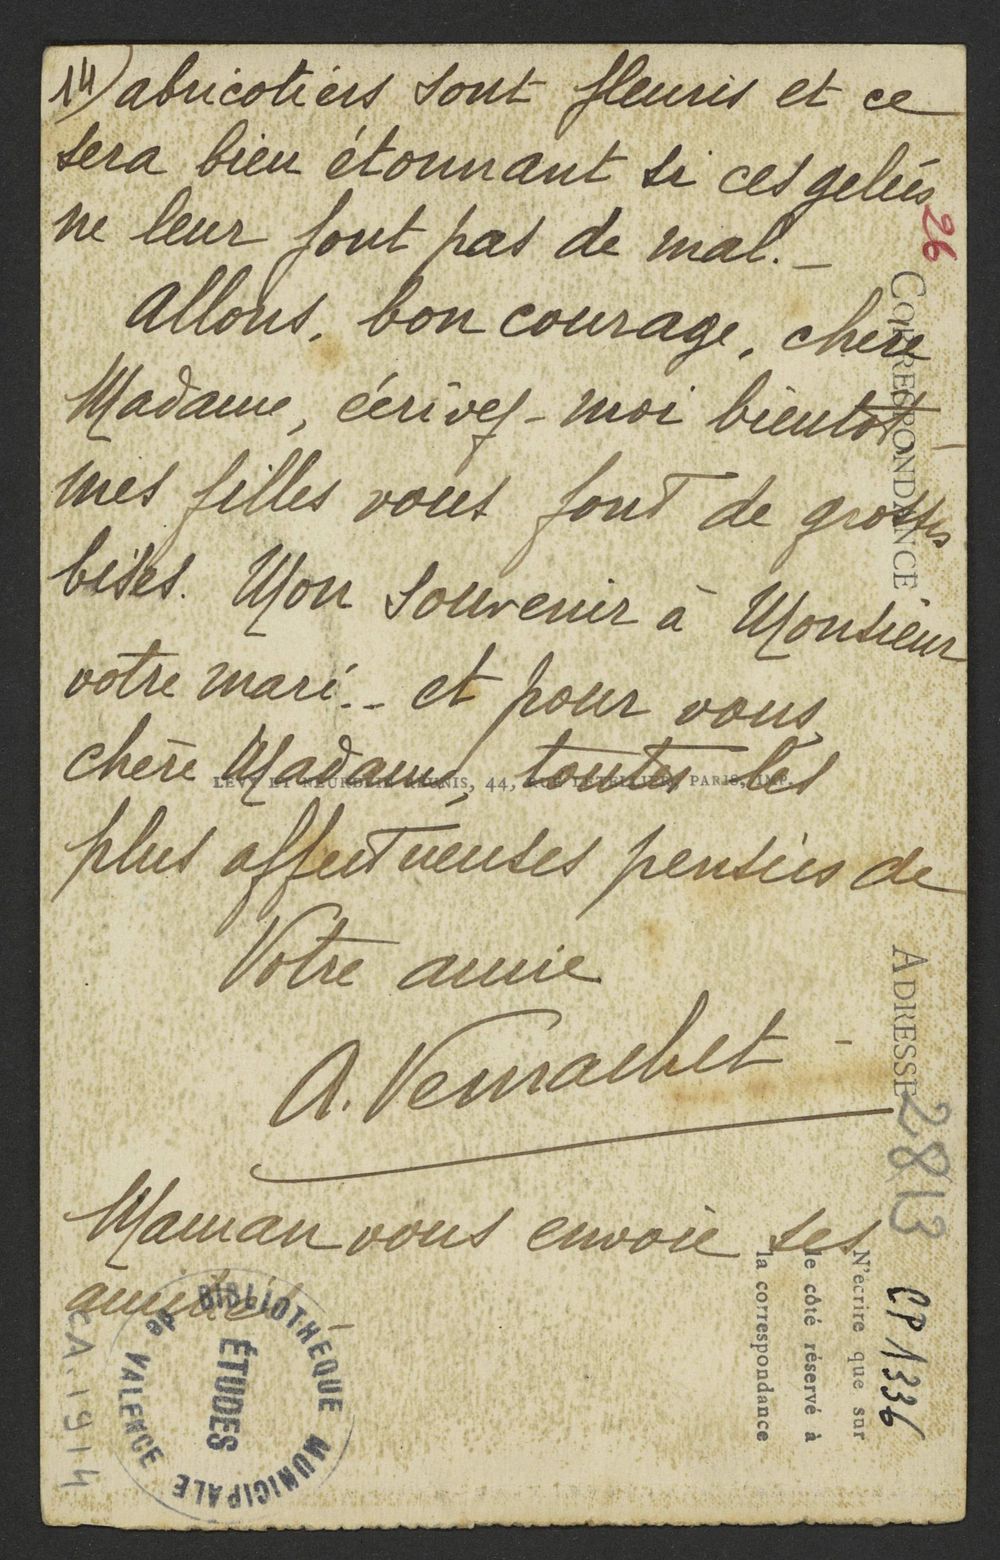 14) abricotiers sont fleuris et ce
sera bien étonnant si ces gelées
ne leur font pas de mal. _
Allons, bon courage, chère
Madame, écrivez-moi bientôt,
mes filles vous font de grosses
bises. Mon souvenir à Monsieur
votre mari. _ et pour vous,
chère Madame, toutes les
plus affectueuses pensées de
Votre amie
A.
Maman vous envoie ses
amitiés _
26
CORRESPONDANCE
ADRESSE
2813
CP 1336
N'ecrire que sur
le côté réservé à
la correspondance
LEVY ET NEURDEIN REUNIS, 44, RUE LETELLIER, PARIS, IMP.
BIBLIOTHEQUE MUNICIPALE DE VALENCE
ÉTUDES
CA. 1914